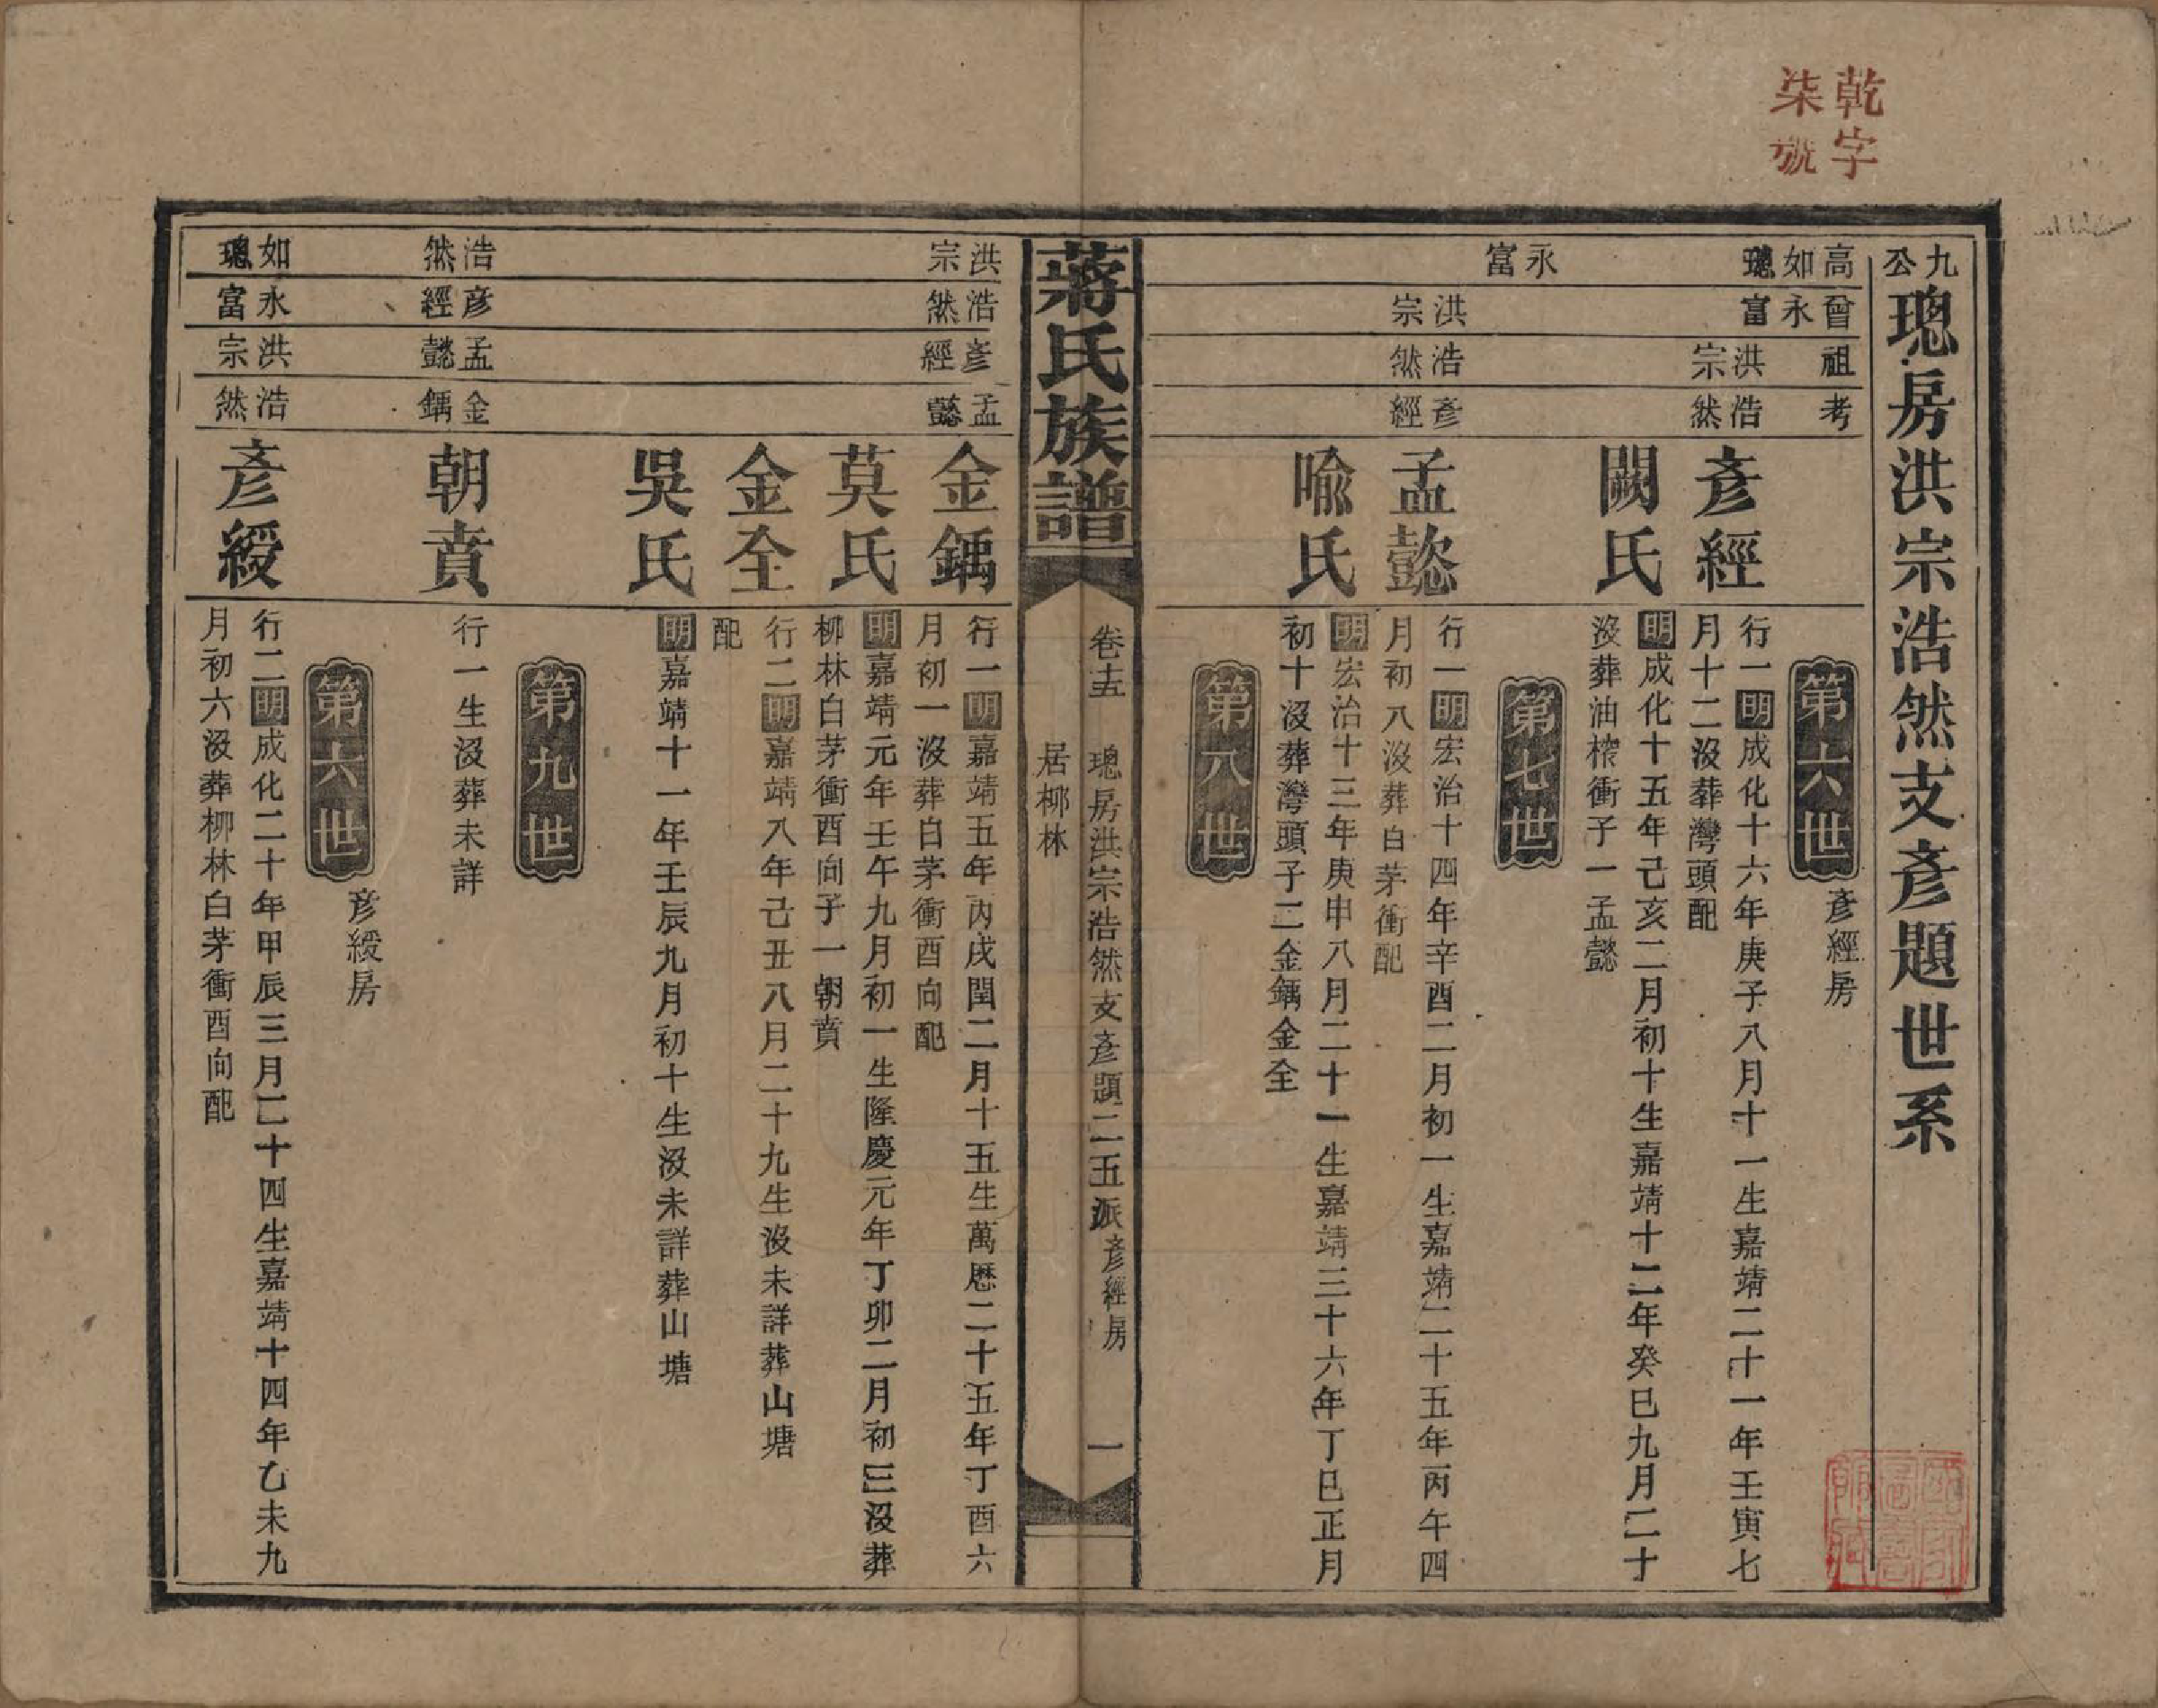 乾字
柒號
九公璁房洪宗浩然支彥題世系
高曾祖考
如璁
永富
洪宗
浩然
第六世
彥經房
彥經
行一明成化十六年庚子八月十一生嘉靖二十一年壬寅七
月十二沒葬灣頭配
闕氏
明成化十五年己亥二月初十生嘉靖十二年癸巳九月二十
沒葬油榨衝子一孟懿
第七世
永富
洪宗
浩然
彥經
孟懿
行一明宏治十四年辛酉二月初一生嘉靖二十五年丙午四
月初八沒葬白茅衝配
喻氏
明宏治十三年庚申八月二十一生嘉靖三十六年丁巳正月
初十沒葬灣頭子二金鍝金全
第八世
蔣氏族譜
卷十五
璁房洪宗浩然支彥題二五派彥經房
居柳林
一
洪宗
浩然
彥經
孟懿
金鍝
行一明嘉靖五年丙戌閏二月十五生萬歷二十五年丁酉六
月初一沒葬白茅衝酉向配
莫氏
明嘉靖元年壬午九月初一生隆慶元年丁卯二月初三沒葬
柳林白茅衝酉向子一朝賁
金全
行二明嘉靖八年己丑八月二十九生沒未詳葬山塘
配
吳氏
明嘉靖十一年壬辰九月初十生沒未詳葬山塘
第九世
浩然
彥經
孟懿
金鍝
朝賁
行一生沒葬未詳
第六世
彥綬房
如璁
永富
洪宗
浩然
彥綬
行二明成化二十年甲辰三月二十四生嘉靖十四年乙未九
月初六沒葬柳林白茅衝酉向配